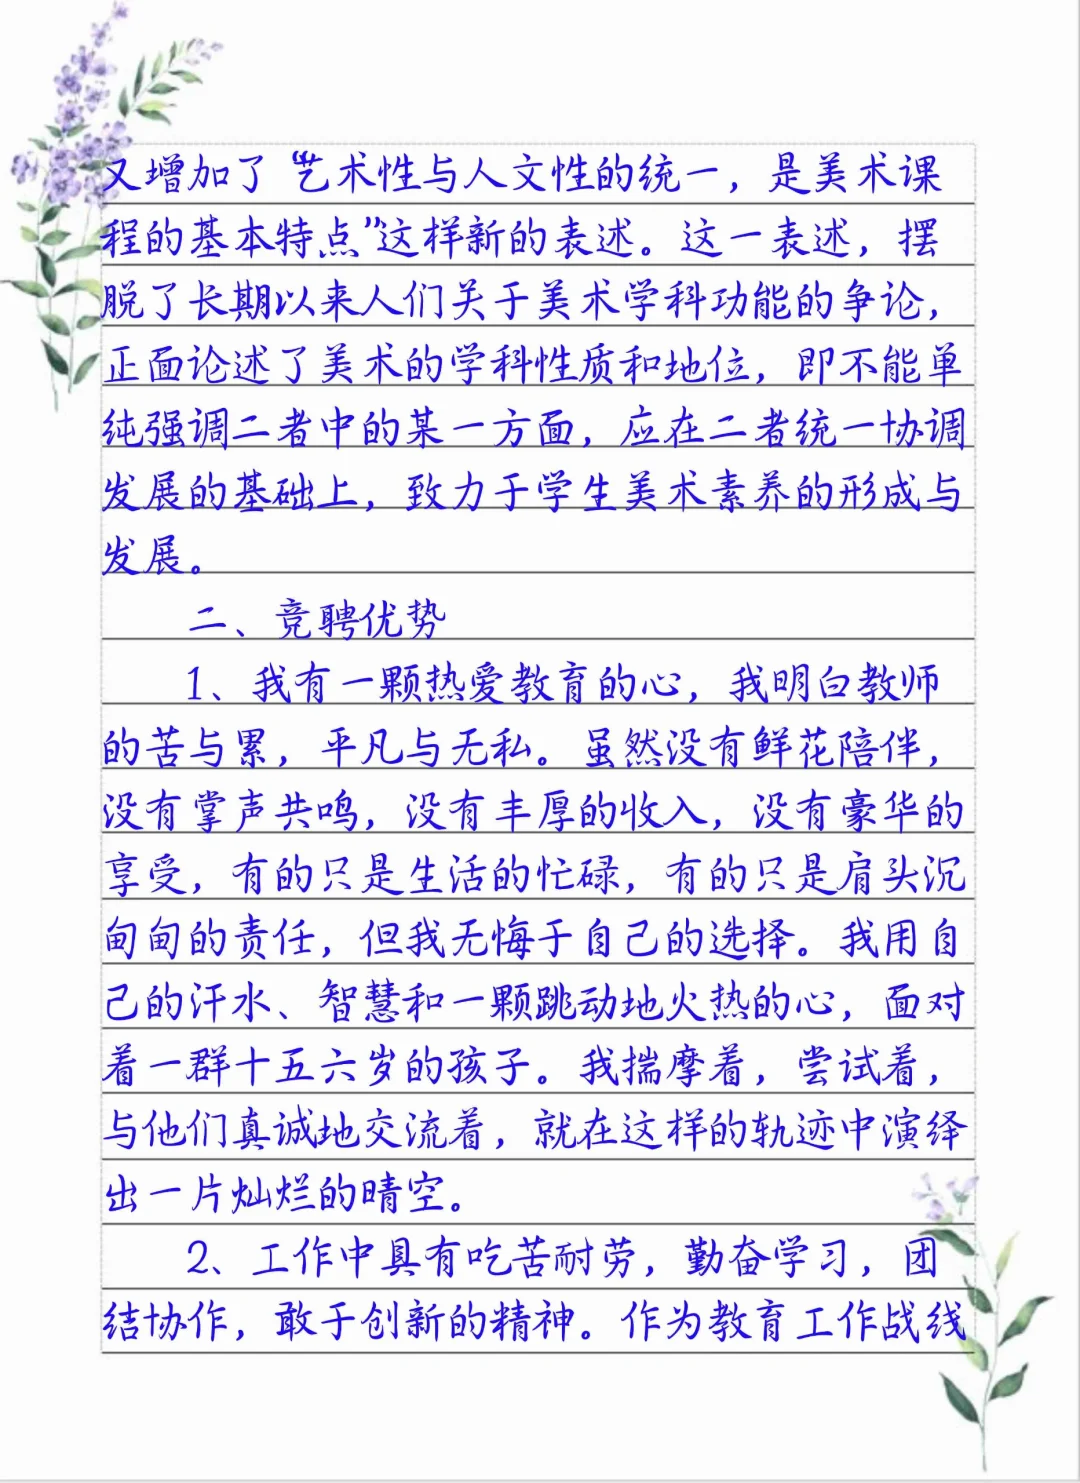 又增加了“艺术性与人文性的统一，是美术课
程的基本特点”这样新的表述。这一表述，摆
脱了长期以来人们关于美术学科功能的争论，
正面论述了美术的学科性质和地位，即不能单
纯强调二者中的某一方面，应在二者统一协调
发展的基础上，致力于学生美术素养的形成与
发展。
二、竞聘优势
1、我有一颗热爱教育的心，我明白教师
的苦与累，平凡与无私。虽然没有鲜花陪伴，
没有掌声共鸣，没有丰厚的收入，没有豪华的
享受，有的只是生活的忙碌，有的只是肩头沉
甸甸的责任，但我无悔于自己的选择。我用自
己的汗水、智慧和一颗跳动地火热的心，面对
着一群十五六岁的孩子。我揣摩着，尝试着，
与他们真诚地交流着，就在这样的轨迹中演绎
出一片灿烂的晴空。
2、工作中具有吃苦耐劳，勤奋学习，团
结协作，敢于创新的精神。作为教育工作战线